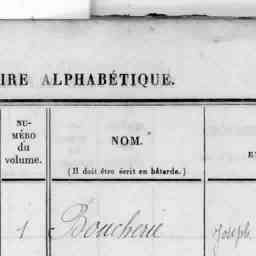 IRE ALPHABÉTIQUE.
NU-
MÉRO
du
volume.
NOM.
(Il doit être écrit en bâtarde.)
E
1 Boucherie Joseph